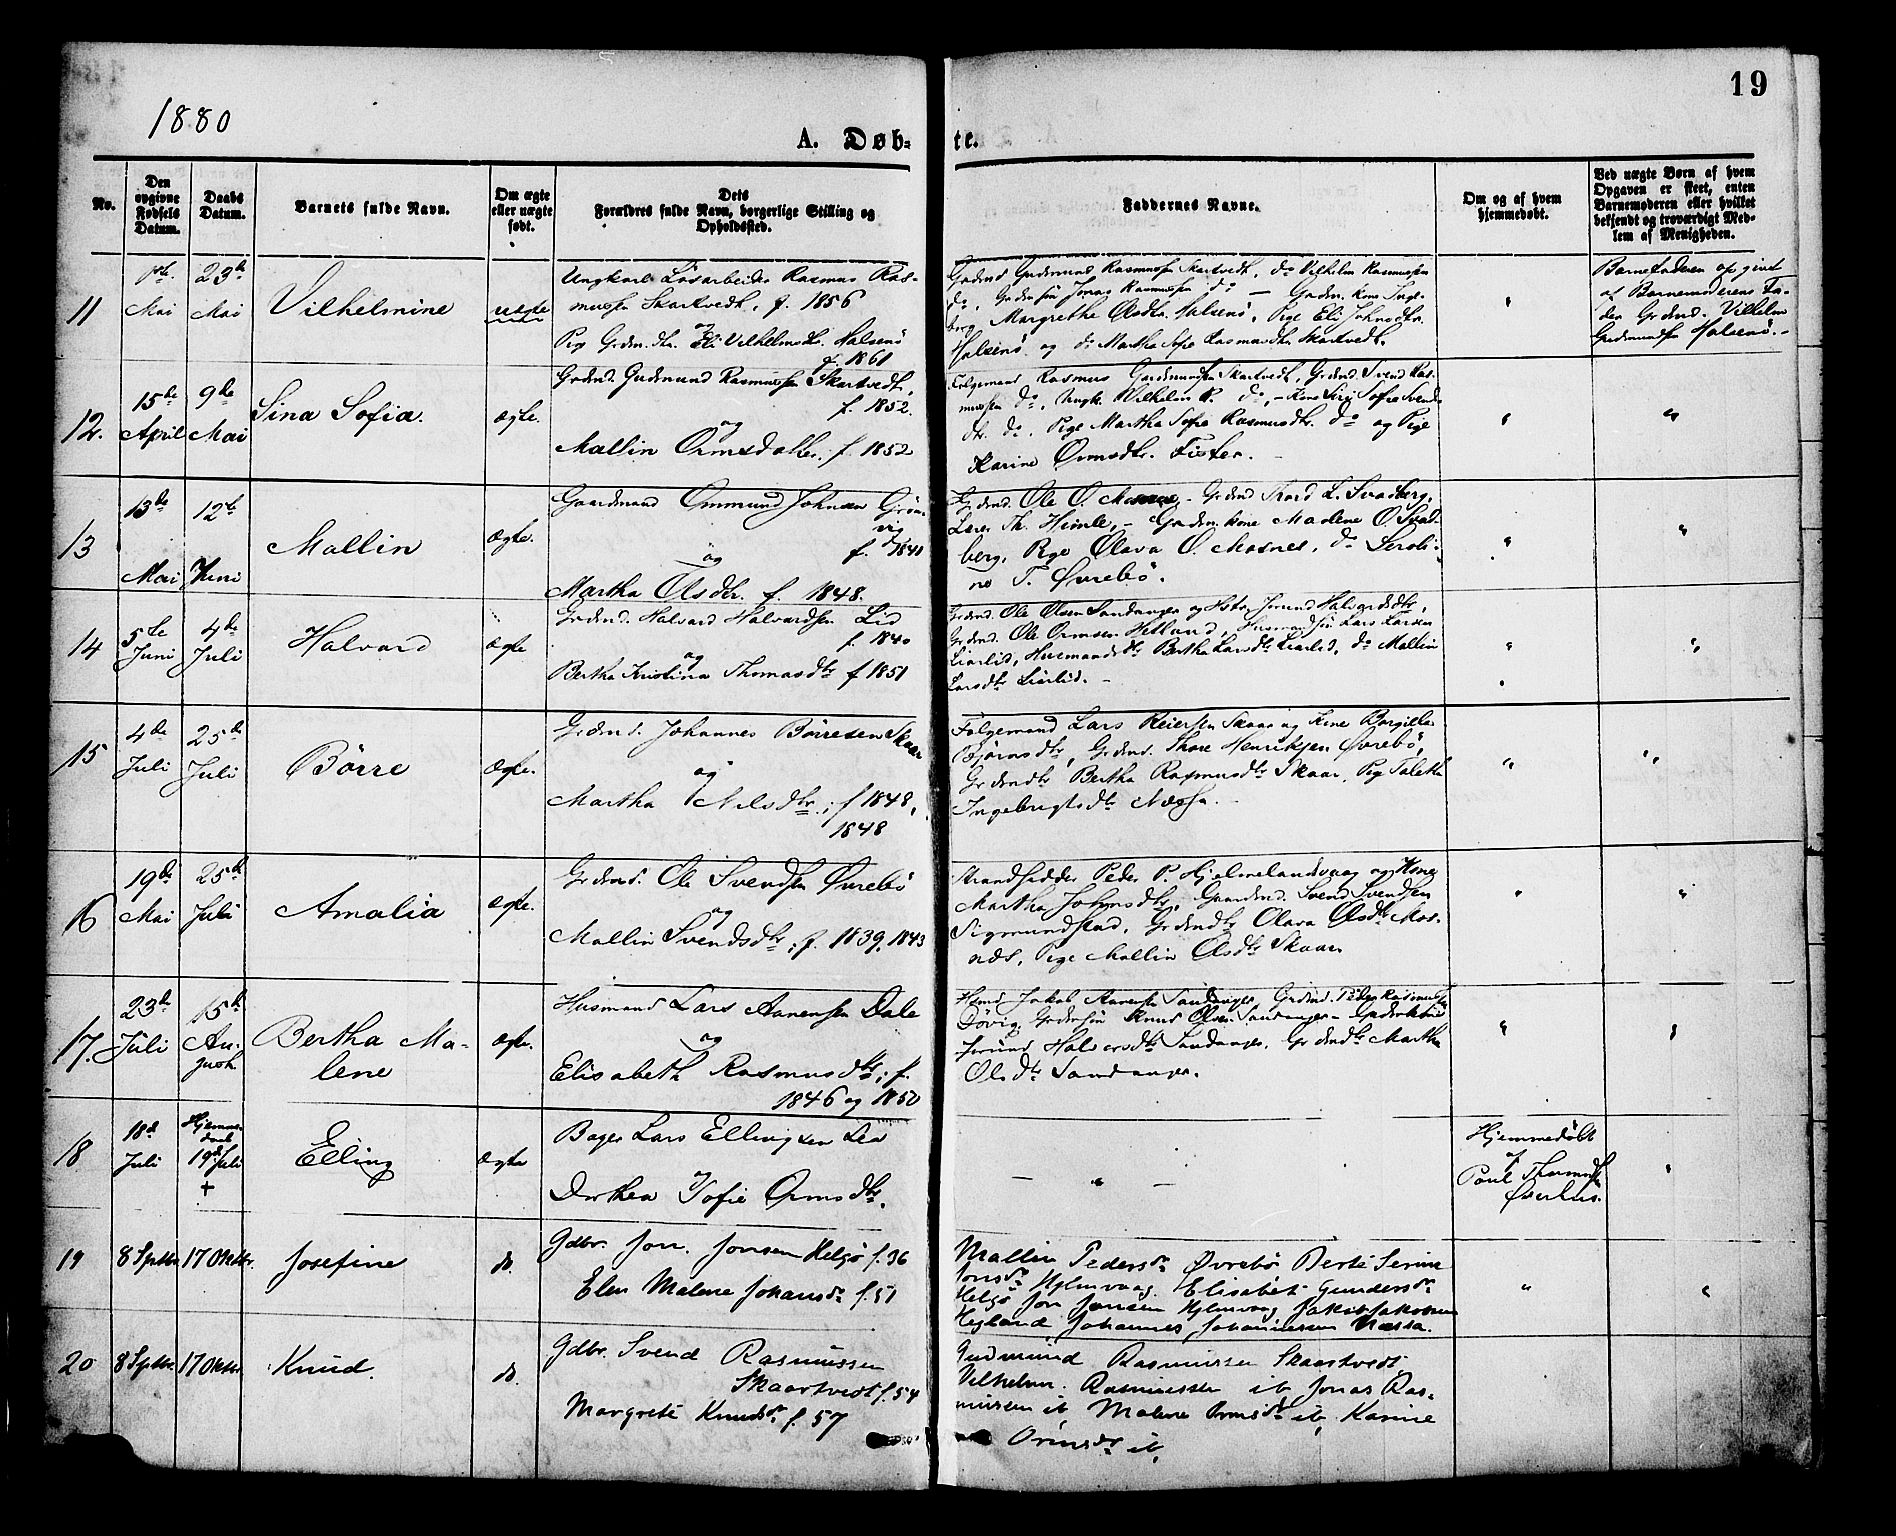 19
1880
A. Døb-
te.
No.
Den opgivne Fødsels Datum.
Daabs Datum.
Barnets fulde Navn.
Om ægte eller uægte født.
Dets Forældres fulde Navn, borgerlige Stilling og Opholdssted.
Faddernes Navne.
Om og af hvem hjemmedøbt.
Ved uægte Børn af hvem Opgaven er skeet, enten Barnemoderen eller hvilket bekjendt og troværdigt Medlem af Menigheden.
11
1ste Mai
23de Mai
Vilhelmine
uægte
Ungkarl Løsarbeider Rasmus Ras-
mussen Skartvedt, f. 1856
og
Pige Grdm. dtr. Eli Vilhelmsdtr. Halsenö
f. 1861
Grdmd Gudmund Rasmussen Skartvedt, do Vilhelm Rasmussen
do, Grdm. søn Jonas Rasmussen do — Grdm. kone Inge-
borg Margrethe Olsdtr. Halsenö, Pige Eli Johnsdtr.
Halsenö og do Martha Sofie Rasmusdtr. Skartvedt.
"
Barnefaderen opgivet
af Barnemoderens Fa-
der Grdmd. Vilhelm
Gudmundsen Halsenö.-
12.
15de April
9de Mai
Sina Sofia.
ægte.
Grdmd. Gudmund Rasmussen Skartvedt,
f. 1852.
og
Mallin Ormsdatter, f. 1852
Folgemand Rasmus Gudmundsen Skartvedt, Grdmd. Svend Ras-
mussen do, Ungk. Vilhelm R. do, - Kone Siri Sofie Svends-
dtr. do, Pige Martha Sofie Rasmusdtr. do og Pige
Karine Ormsdtr. Fister. -
"
"
13
13de Mai
12te Juni
Mallin
ægte.
Gaardmand Ommund Johnsen Grön-
vig
f. 1841
og
Martha Olsdtr. f. 1848.
Grdmd. Ole O. Mosnes, - Grdmd Thord L. Svadberg,
Lars Th. Himle, - Grdm. kone Marlene O. Svad-
berg, Pige Olava O. Mosnes, do Seroli-
ne T. Øvrebö.
"
"
14
5te Juni
4de Juli
Halvard
ægte
Grdmd. Halvard Halvardsen Lid
f. 1840
og
Bertha Kristina Thomasdtr f 1851
Grdmd. Ole Olsen Sandanger og Hstr. Jorund Halvardsdtr,
Grdmd. Ole Ormsen Hetland, Husmandsøn Lars Larsen
Liarlid, Husmandsdtr Bertha Larsdtr Liarlid, do Mallin
Larsdtr Liarlid. -
"
"
15
4de Juli
25de Juli
Börre
ægte.
Grdmd. Johannes Börresen Skaar
og
Martha Nilsdtr.; f 1848,
1848
Folgemand Lars Reiersen Skaar og Kone Borgilla
Bjørnsdtr, Grdmd. Thore Henriksen Øvrebö,
Grdmdtr Bertha Rasmusdtr Skaar, Pige Taletta
Ingebrigtsdtr Næssa. -
"
"
16
19de Mai
25de Juli
Amalia
ægte.
Grdmd. Ole Svendsen Øvrebö
og
Mallin Svendsdtr; f. 1839, 1843
Strandsidder Peder P. Hjelmelandsvaag og Kone
Martha Johnsdtr, Gaardmd. Svend Svendsen
Sigmundstad, Grdmdtr Olava Olsdtr Mos-
næs, Pige Mallin Olsdtr Skaar.
"
"
17.
23de Juli
15de August.
Bertha Ma-
lene
ægte.
Husmand Lars Aanensen Dale
og
Elisabeth Rasmusdtr; f.
1846 og 1850
Hsmd Jakob Aanensen Sandanger, Grdmd. Peder Rasmussen
Døvig, Grdmsøn Knud Olsen Sandanger - Grdmkone
Jorund Halvorsdtr Sandanger, Grdmdtr Martha
Olsdtr Sandanger.
"
"
18
18de Juli
Hjemme-
døbt
19de Juli
†
Elling
ægte
Bager Lars Ellingsen Lea
og
Dorthea Sofie Ormsdtr.
— " —
Hjemmedöbt
af
Poul Thomasen
"
19
8 Septbr.
17 Oktbr.
Josefine
do.
Gdbr. Jon. Jonsen Helgö f. 36
Elen Malene Johansdr f. 51
Mallin Pedersdr Øvrebö Berte Serine
Jonsdr Hjlmvaag. Elisabet Gundersdr
Helgö Jon Jonsen Hjlmvaag Jakob Jakobsen
Hegland Johannes Johannessen Næssa.
"
"
20
8 Septbr.
17 Oktbr.
Knud.
do.
Gdbr. Svend Rasmussen
Skaartvedt f. 54
Margrete Knudsdr f. 57
Gudmund Rasmussen Skaartvedt
Vilhelm. Rasmussen ib Jonas Ras-
mussen ib, Malene Ormsdr ib, Karine
Ormsdr ib,